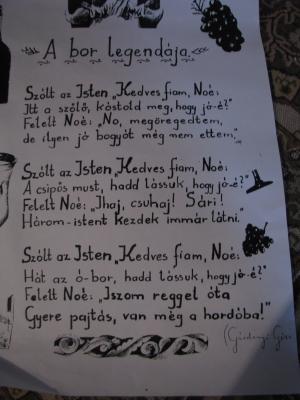 A bor legendája
Szólt az Isten „Kedves fiam, Noé:
Itt a szőlő, kóstold meg, hogy jó-é?"
Felelt Noé: „No, megöregedtem,
de ilyen jó bogyót még nem ettem."
Szólt az Isten „Kedves fiam, Noé:
A csípős must, hadd lássuk, hogy jó-é?"
Felelt Noé: „Ihaj, csuhaj! Sári!
Három-istent kezdek immár látni."
Szólt az Isten „Kedves fiam, Noé:
Hát az ó-bor, hadd lássuk, hogy jó-é?"
Felelt Noé: „Iszom reggel óta
Gyere pajtás, van még a hordóba!"
(Gárdonyi Géza